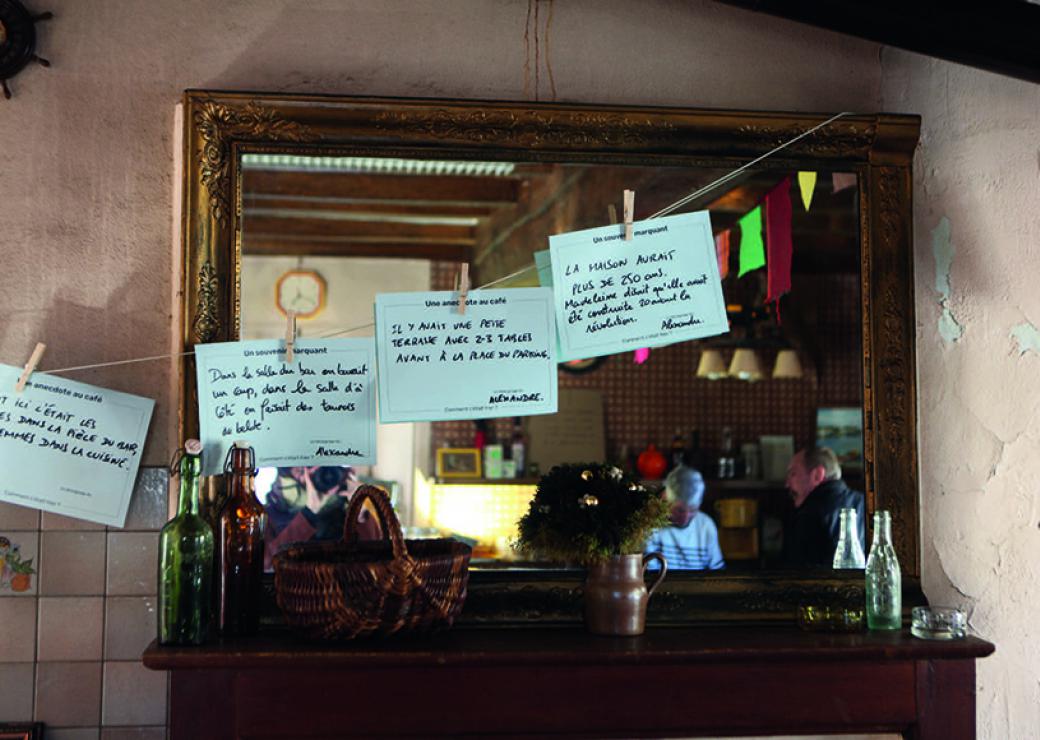 ne anecdote au café
T ICI C'ÉTAIT LES
ES DANS LA PIÈCE DU BAR,
EMMES DANS LA CUISINE.
Comment c'était hier ?
Un souvenir marquant
Dans la salle du bar on buvait
un coup, dans la salle d'à
côté on faisait des tournois
de belote.
Alexandre
Comment c'était hier ?
Une anecdote au café
IL Y AVAIT UNE PETITE
TERRASSE AVEC 2-3 TABLES
AVANT À LA PLACE DU PARKING.
ALEXANDRE.
Comment c'était hier ?
Un souvenir marquant
LA MAISON AURAIT
PLUS DE 250 ans.
Madeleine disait qu'elle avait
été construite 20 avant la
révolution.
Alexandre.
Comment c'était hier ?